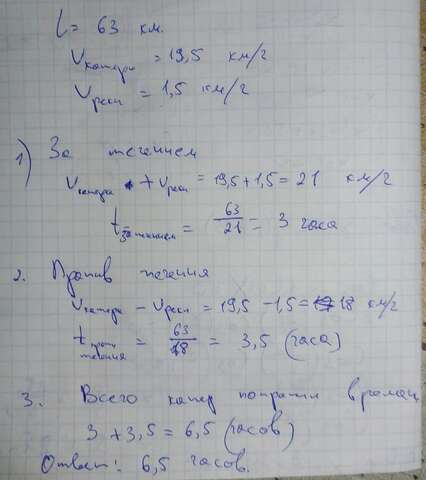 l = 63 км.
Vкатера = 19,5 км/г
Vреки = 1,5 км/г
1) За течением
Vкатера + Vреки = 19,5 + 1,5 = 21 км/г
tза течением = 63/21 = 3 часа
2. Против течения
Vкатера - Vреки = 19,5 - 1,5 = 18 км/г
tпротив течения = 63/18 = 3,5 (часа)
3. Всего катер потратил времени
3 + 3,5 = 6,5 (часов)
Ответ: 6,5 часов.